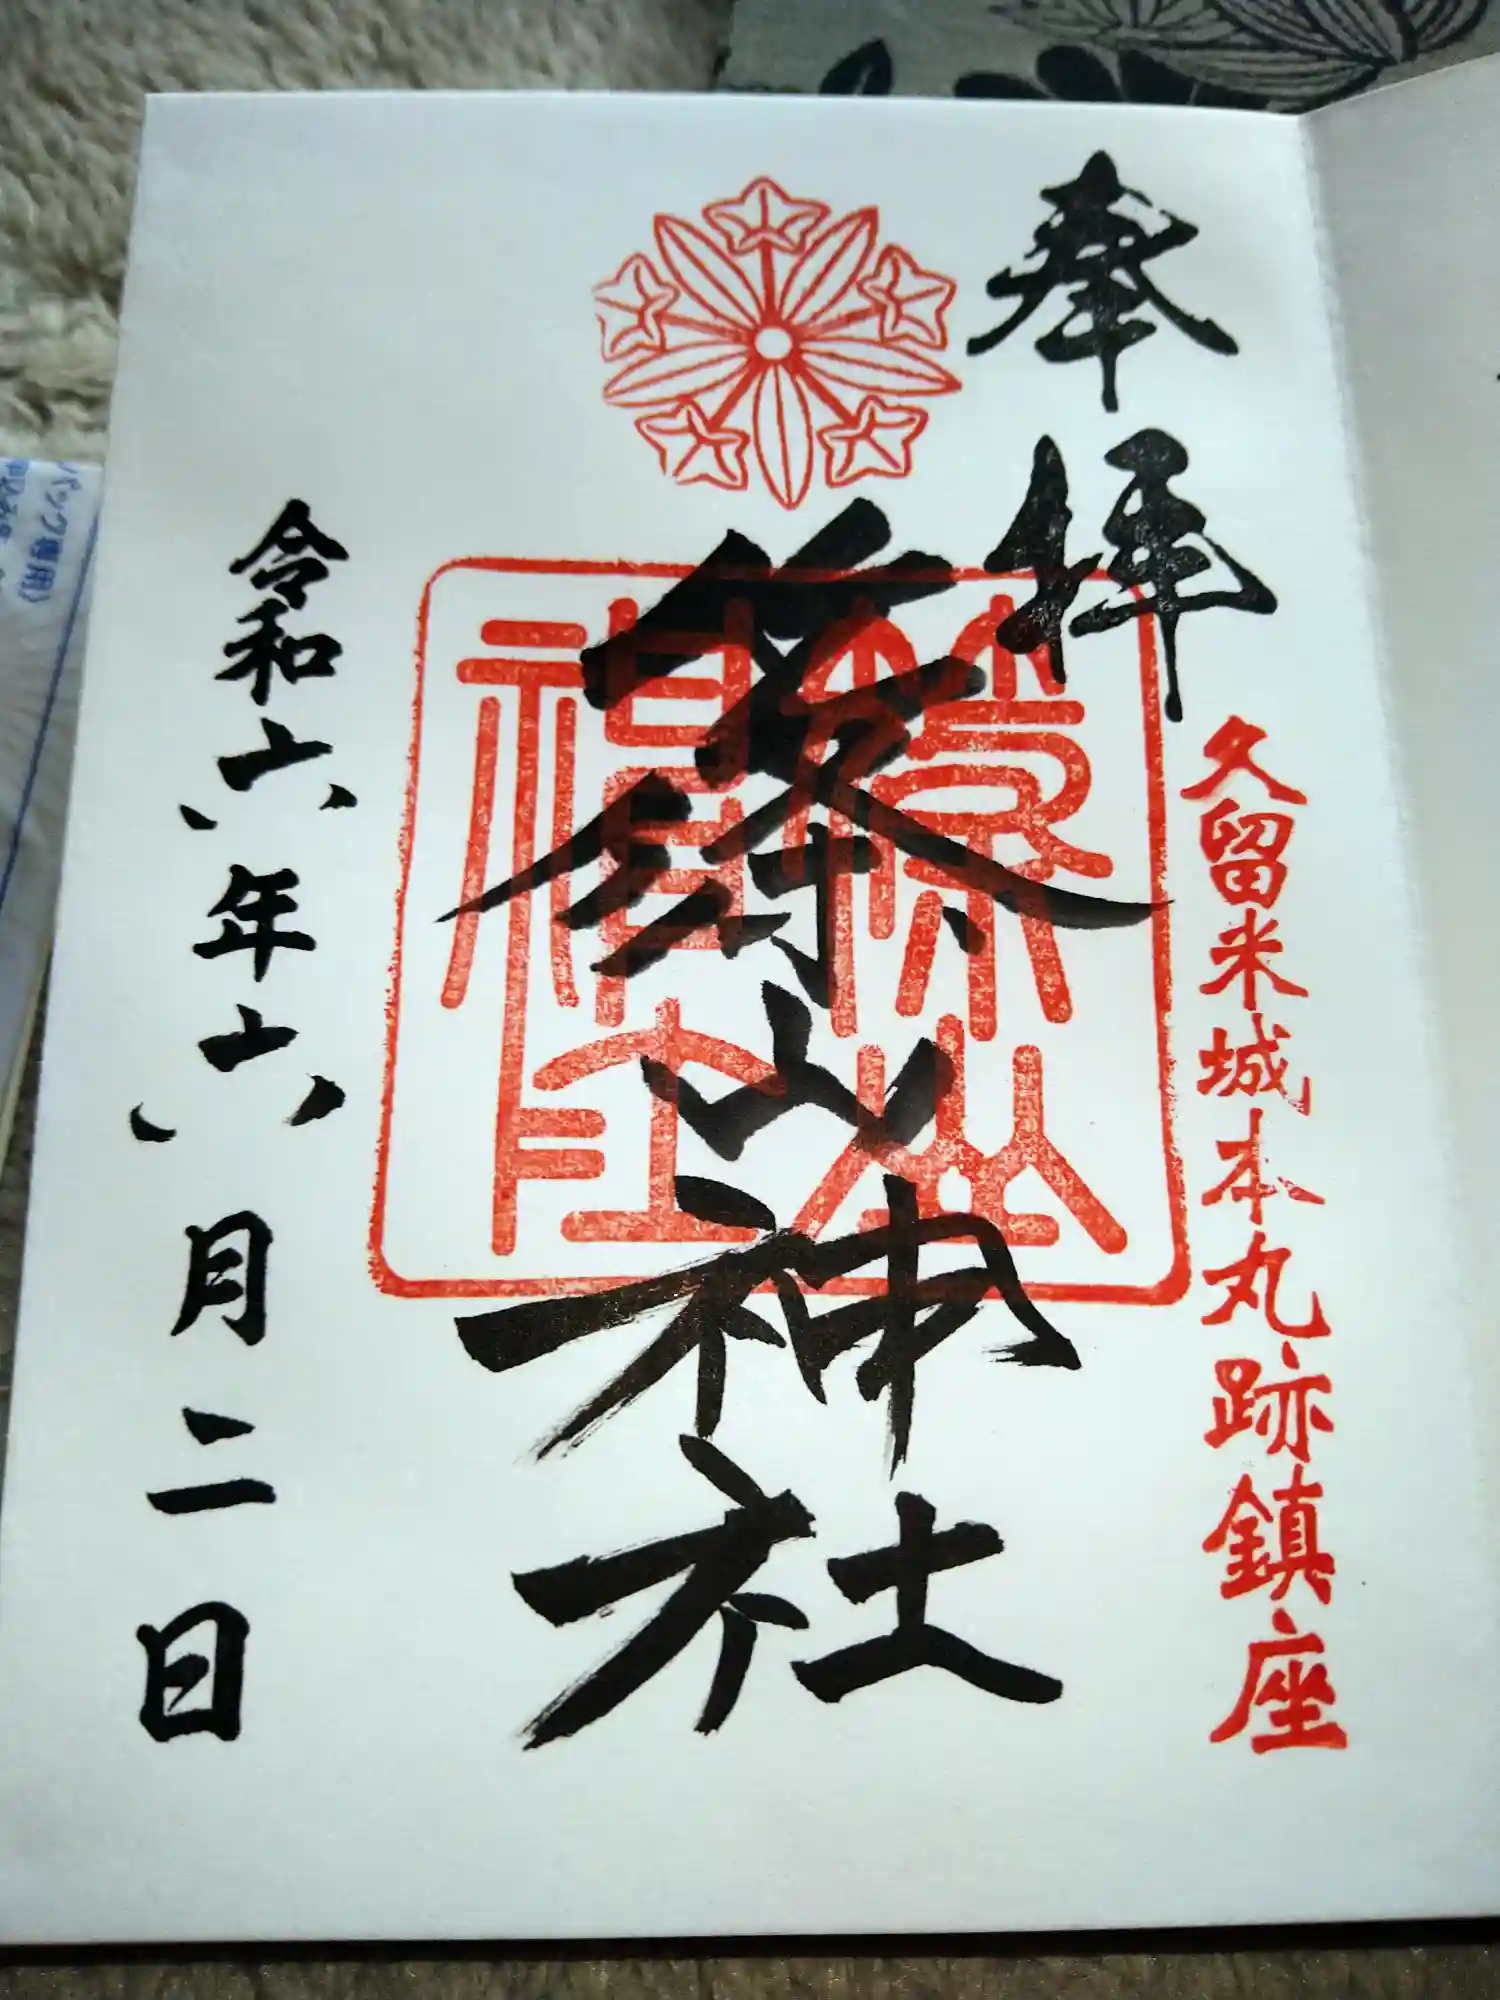 奉拝
久留米城本丸跡鎮座
篠山神社
令和六年六月二日
パック専用)